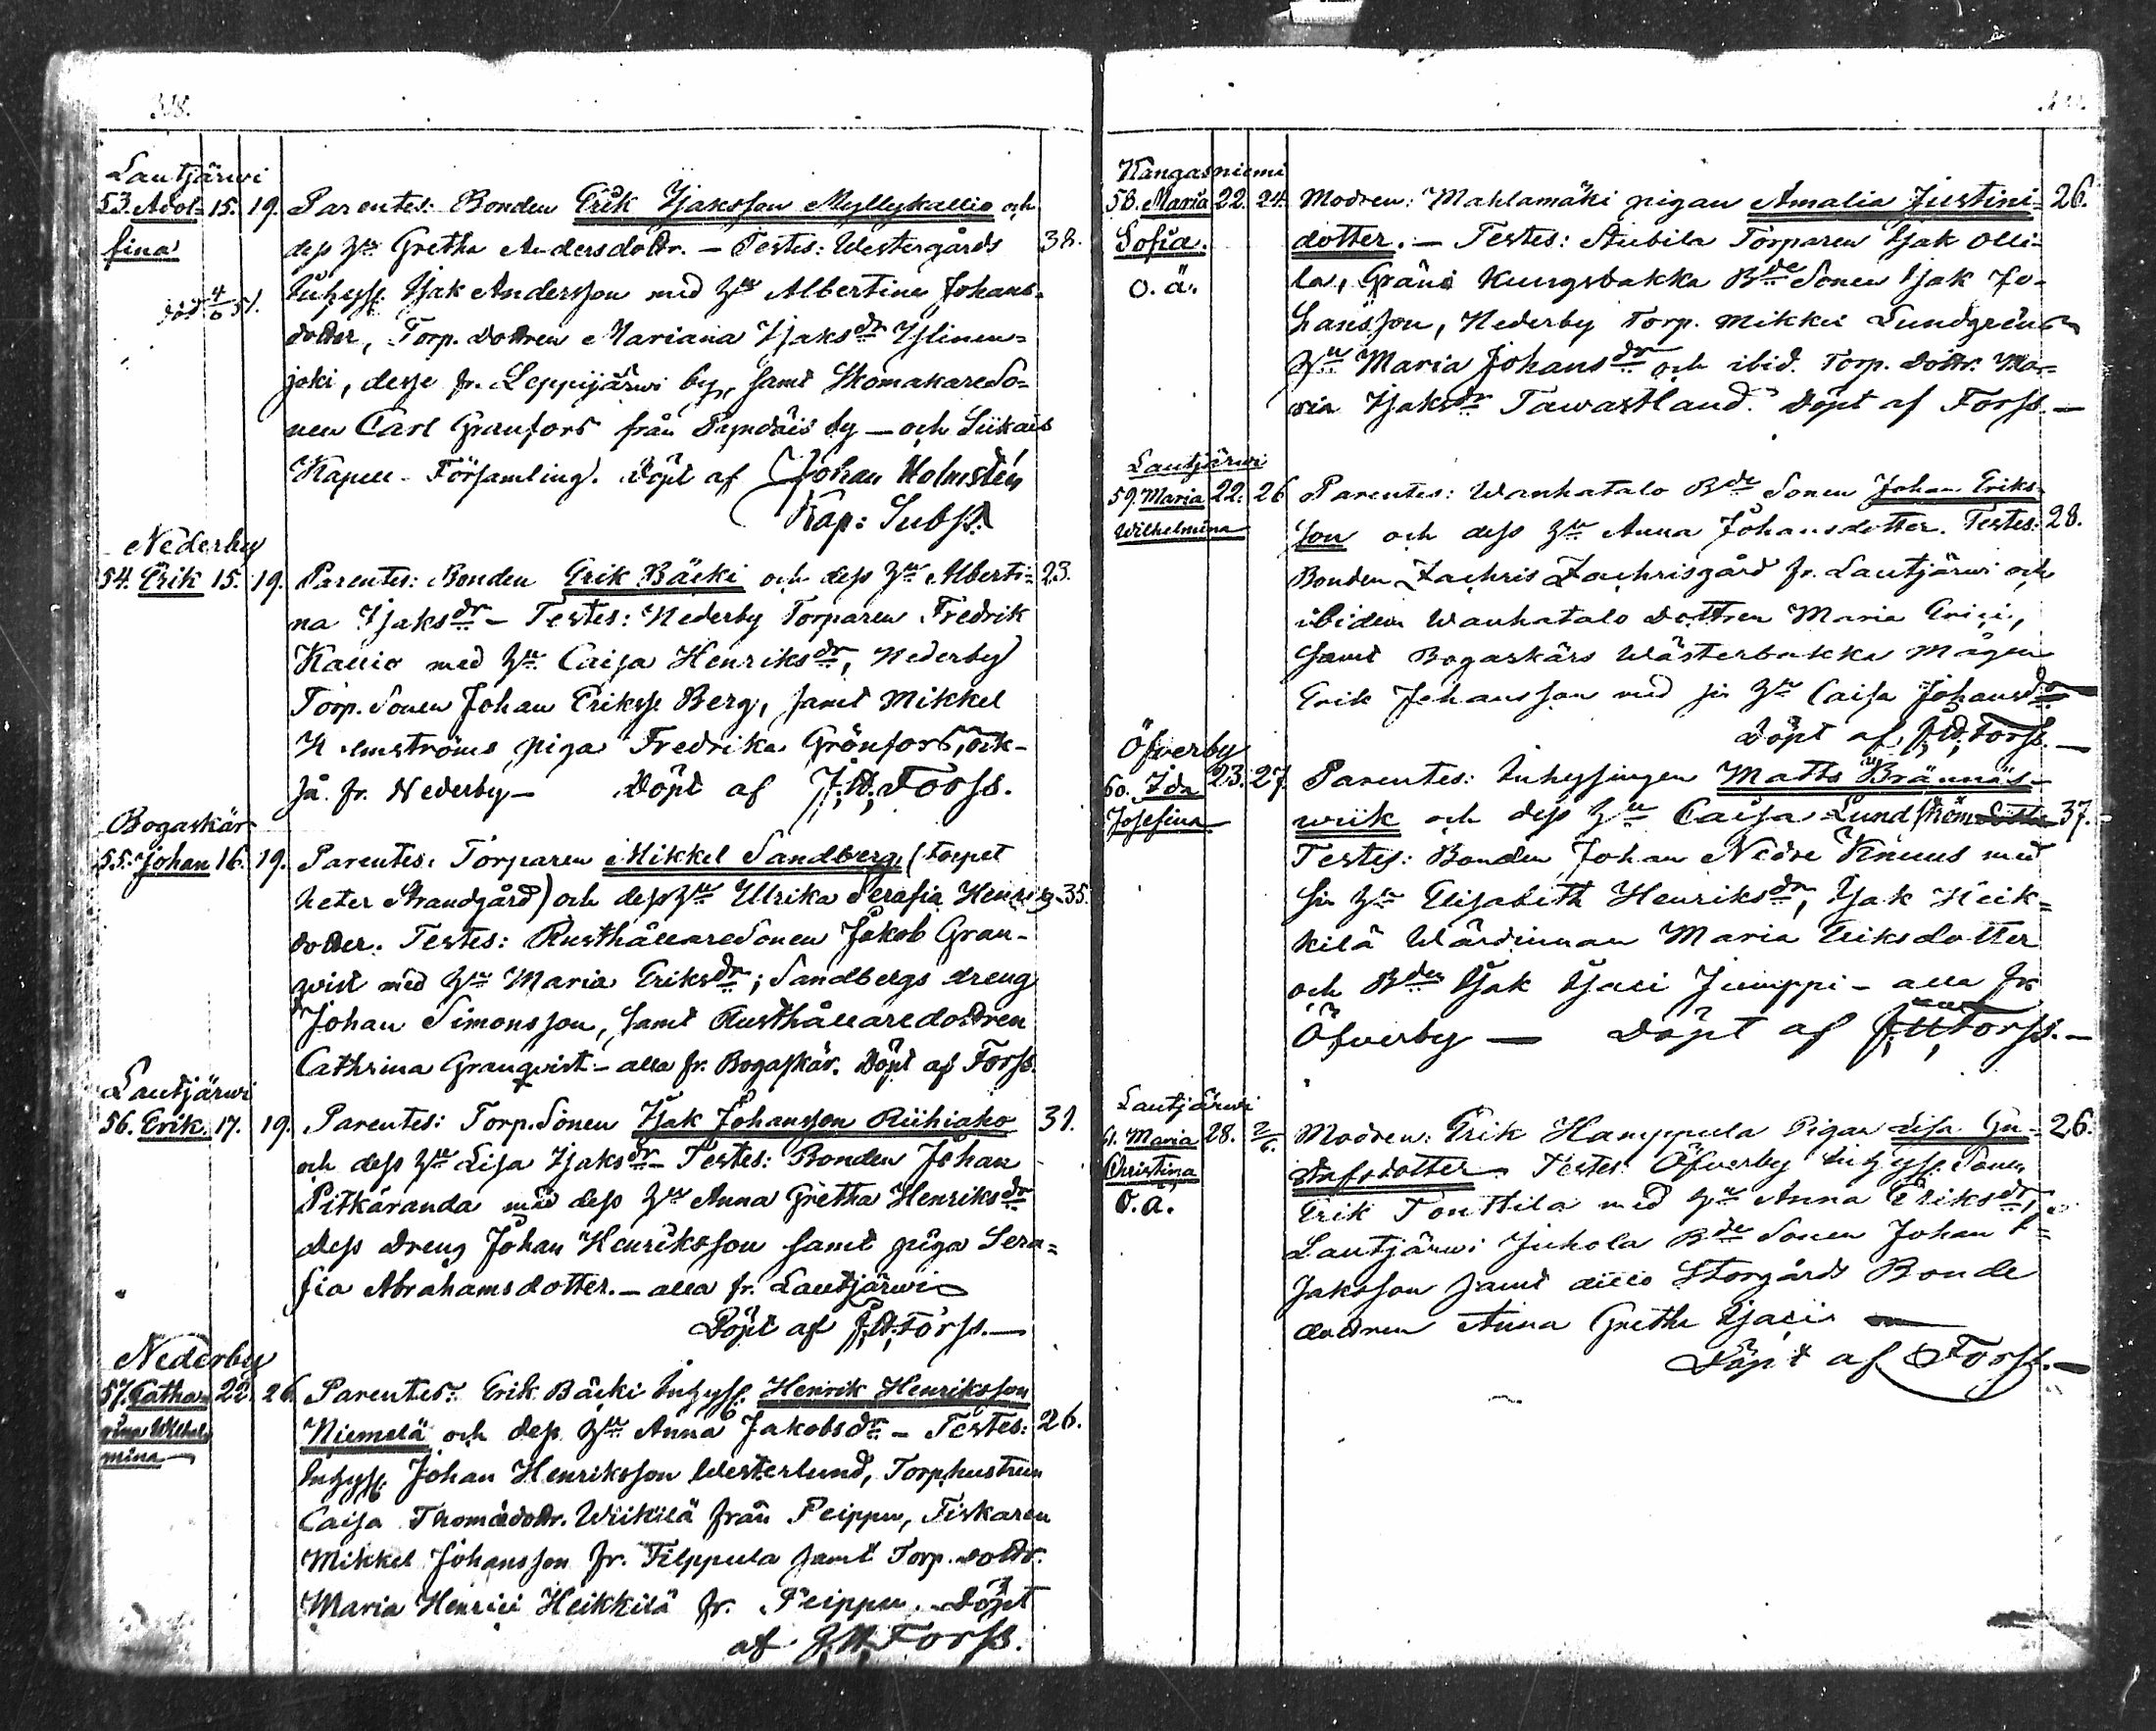 318.
Lautjärwi
53. Adol- 15. 19. Parentes: Bonden Erik Isaksson Myllykallio och
fina dess Hu Gretha Andersdottr. — Testes: Westergårds 38.
Inhyss. Isak Andersson med Hu Albertina Johans-
död 4/6 51. dotter, Torp. dottren Mariana Isaksdr Ylinen-
joki, desse fr. Leppijärwi by, samt SkomakareSo-
nen Carl Granfors från by — och Siikais
Kapell-Församling. Döpt af Johan Holmstén
Kap: Subst.
Nederby
54. Erik 15. 19. Parentes: Bonden Erik Bäcki och dess Hu Alberti- 23.
na Isaksdr — Testes: Nederby Torparen Fredrik
Kallio med Hu Caisa Henriksdr, Nederby
Torp. Sonen Johan Erikss. Berg, samt Mikkel
piga Fredrika Grönfors, ock-
så fr. Nederby — Döpt af J.W. Forss.
Bogaskär
55. Johan 16. 19. Parentes: Torparen Mikkel Sandberg, (torpet
heter Strandgård) och dess Hu Ulrika Serafia Henriks- 35.
dotter. Testes: RusthållareSonen Jakob Gran-
qvist med Hu Maria Eriksdr; Sandbergs dreng
Johan Simonsson, samt Rusthållaredottren
Cathrina Granqvist — alla fr. Bogaskär. Döpt af Forss.
Lautjärwi
56. Erik. 17. 19. Parentes: Torp. Sonen Isak Johansson Riihiaho 31.
och dess Hu Lisa Isaksdr — Testes: Bonden Johan
Pitkäranda med dess Hu Anna Gretha Henriksdr
dess dreng Johan Henriksson samt piga Sera-
fia Abrahamsdotter. — alla fr. Lautjärwi
Döpt af J.W. Forss. —
Nederby
57. Catha- 22. 26. Parentes: Erik Bäcki Inhyss. Henrik Henriksson
rina Wilhel- Niemelä och dess Hu Anna Jakobsdr — Testes: 26.
mina Inhyss. Johan Henriksson Westerlund, Torp. hustrun
Caisa Thomædottr. Wiikilä från Peippu, Fiskaren
Mikkel Johansson fr. Filppula samt Torp. dottr.
Maria Henrici Heikkilä fr. Peippu. Döpt
af J.W. Forss.
Kangasniemi
58. Maria 22. 24. Modren: Mahlamäki pigan Amalia Justini- 26.
Sofia. dotter. — Testes: Anbila Torparen Isak Olli-
o. ä. la, Gränö Kungsbakka Bde Sonen Isak Jo-
hansson, Nederby Torp. Mikkel Lundgréns
Hu Maria Johansdr och ibid. Torp. dottr. Ma-
ria Isaksdr Tawastland. Döpt af Forss. —
Lautjärwi
59. Maria 22. 26 Parentes: Wanhatalo Bde Sonen Johan Eriks-
Wilhelmina son och dess Hu Anna Johansdotter. Testes: 28.
Bonden Zachris Zachrisgård fr. Lautjärwi och
ibidem Wanhatalo dottren Maria Erici,
samt Bogaskärs Wästerbakka Mågen
Erik Johansson med sin Hu Caisa Johansdr
Döpt af J.W. Forss. —
Öfverby
60. Ida 23. 27. Parentes: Inhysingen Matts Brännäs-
Josefina wiik och dess Hu Caisa Lundström 37.
Testes: Bonden Johan Nedre med
sin Hu Elisabeth Henriksdr, Isak Heik-
kilä Wärdinnan Maria Eriksdotter
och Bden Isak Isaci Jumppi — alla fr.
Öfverby — Döpt af J.W. Forss. —
Lautjärwi
61. Maria 28. 2/6. Modren: Erik Hamppula Pigan Lisa Gu- 26.
Christina stafsdotter. Testes: Öfverby Inhyss. Sonen
O. ä. Erik Tonttila med Hu Anna Eriksdr,
Lautjärwi Juhola Bde Sonen Johan I-
saksson samt Storgårds Bonde
dottren Anna Gretha Isaci —
Döpt af Forss. —